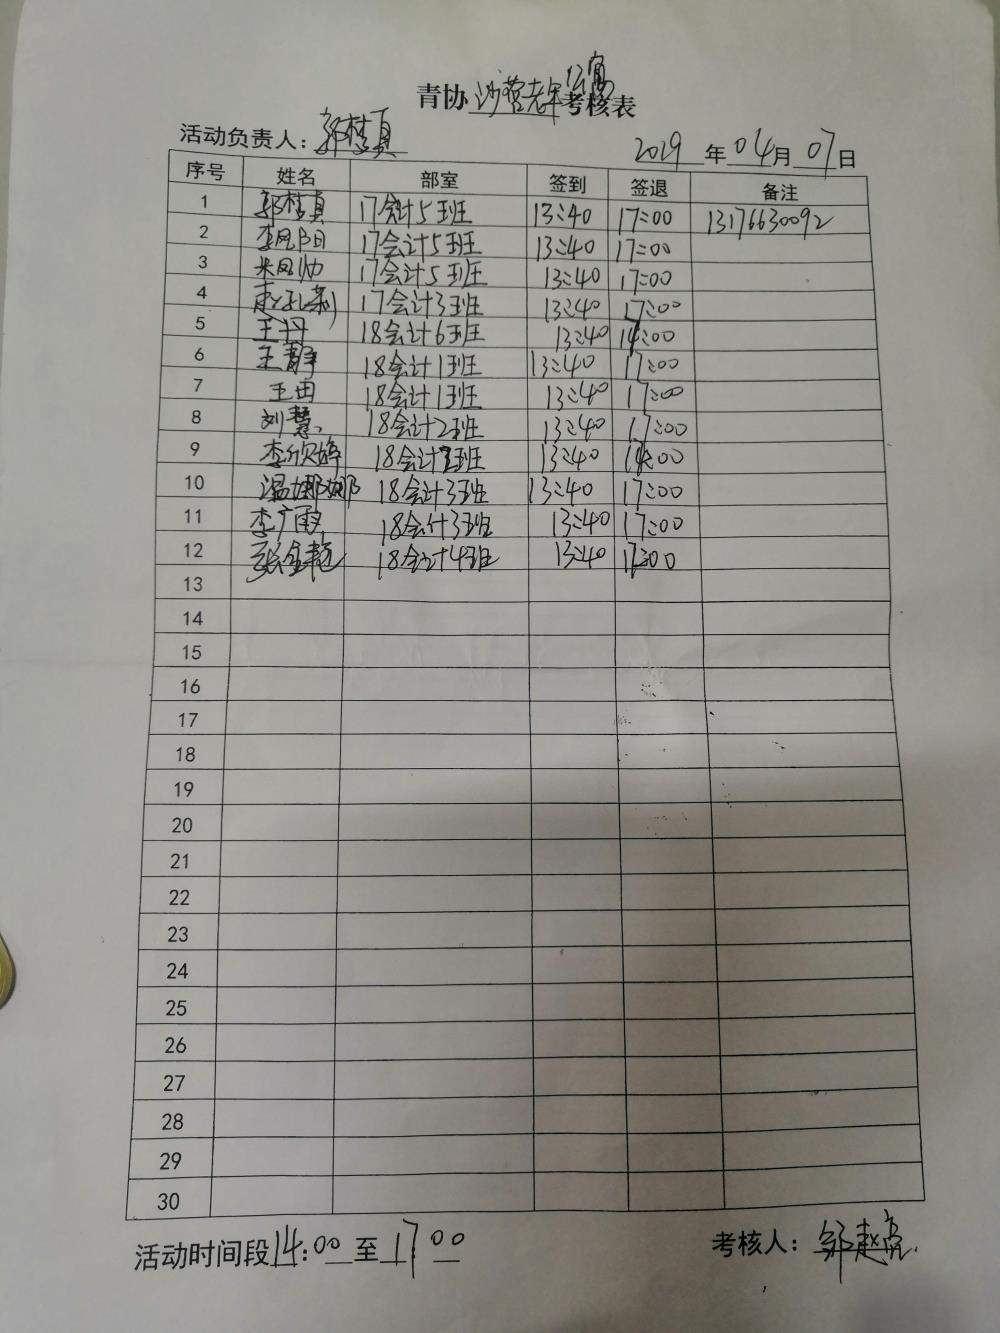 青协沙营老年公寓考核表
活动负责人：郭梦真
2019年04月07日
序号 姓名 部室 签到 签退 备注
1 郭梦真 17会计5班 13:40 17:00 13176630092
2 17会计5班 13:40 17:00
3 米凤帅 17会计5班 13:40 17:00
4 17会计3班 13:40 17:00
5 王丹 18会计6班 13:40 17:00
6 王静 18会计1班 13:40 17:00
7 王田 18会计1班 13:40 17:00
8 刘慧 18会计2班 13:40 17:00
9 李欣婷 18会计2班 13:40 17:00
10 温娜娜 18会计3班 13:40 17:00
11 李广霞 18会计3班 13:40 17:00
12 张金艳 18会计4班 13:40 17:00
13
14
15
16
17
18
19
20
21
22
23
24
25
26
27
28
29
30
活动时间段14:00至17:00
考核人：邹赵亮